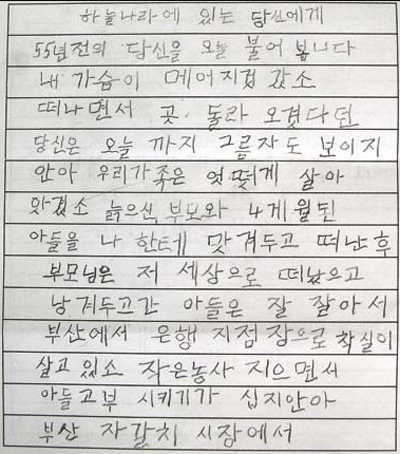 하늘나라에 있는 당신에게
55년전의 당신을 오늘 불어 봅니다
내 가슴이 메어지겁 갔소
떠나면서 곳 둘라 오겠다던
당신은 오늘 까지 그름자도 보이지
안아 우리가족은 엇떻게 살아
와겠소 늙으신 부모와 4개월된
아들을 나 한테 맛겨두고 떠난후
부모님은 저 세상으로 떠났으고
남겨두고간 아들은 잘 잘아서
부산에서 은행 지점장으로 착실이
살고 있소 작은농사 지으면서
아들고부 시키기가 십지안아
부산 자갈치 시장에서